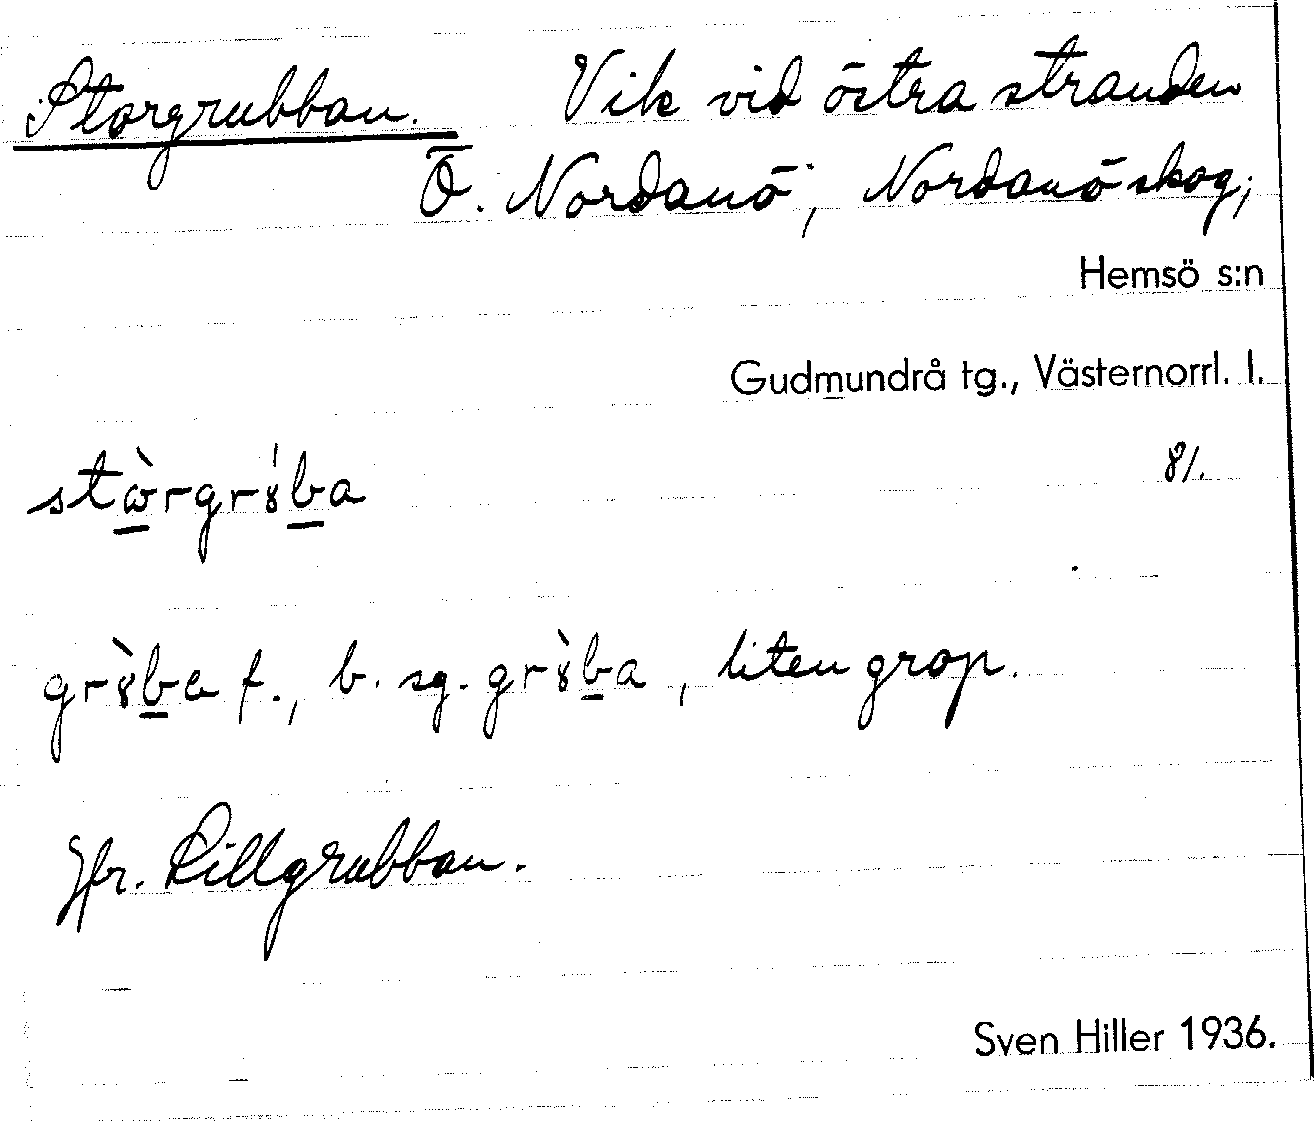 Storgrubban. Vik vid östra stranden
Ö. Nordanö; Nordanö skog;
Hemsö s:n
Gudmundrå tg., Västernorrl. l.
81.
stὼrgrȣ́ba
grȣ̀ba f., b. sg. grȣ̀ba, liten grop.
Jfr. Lillgrubban.
Sven Hiller 1936.